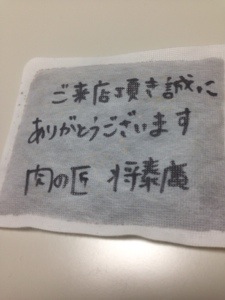 ご来店頂き誠に
ありがとうございます
肉の匠 将泰庵